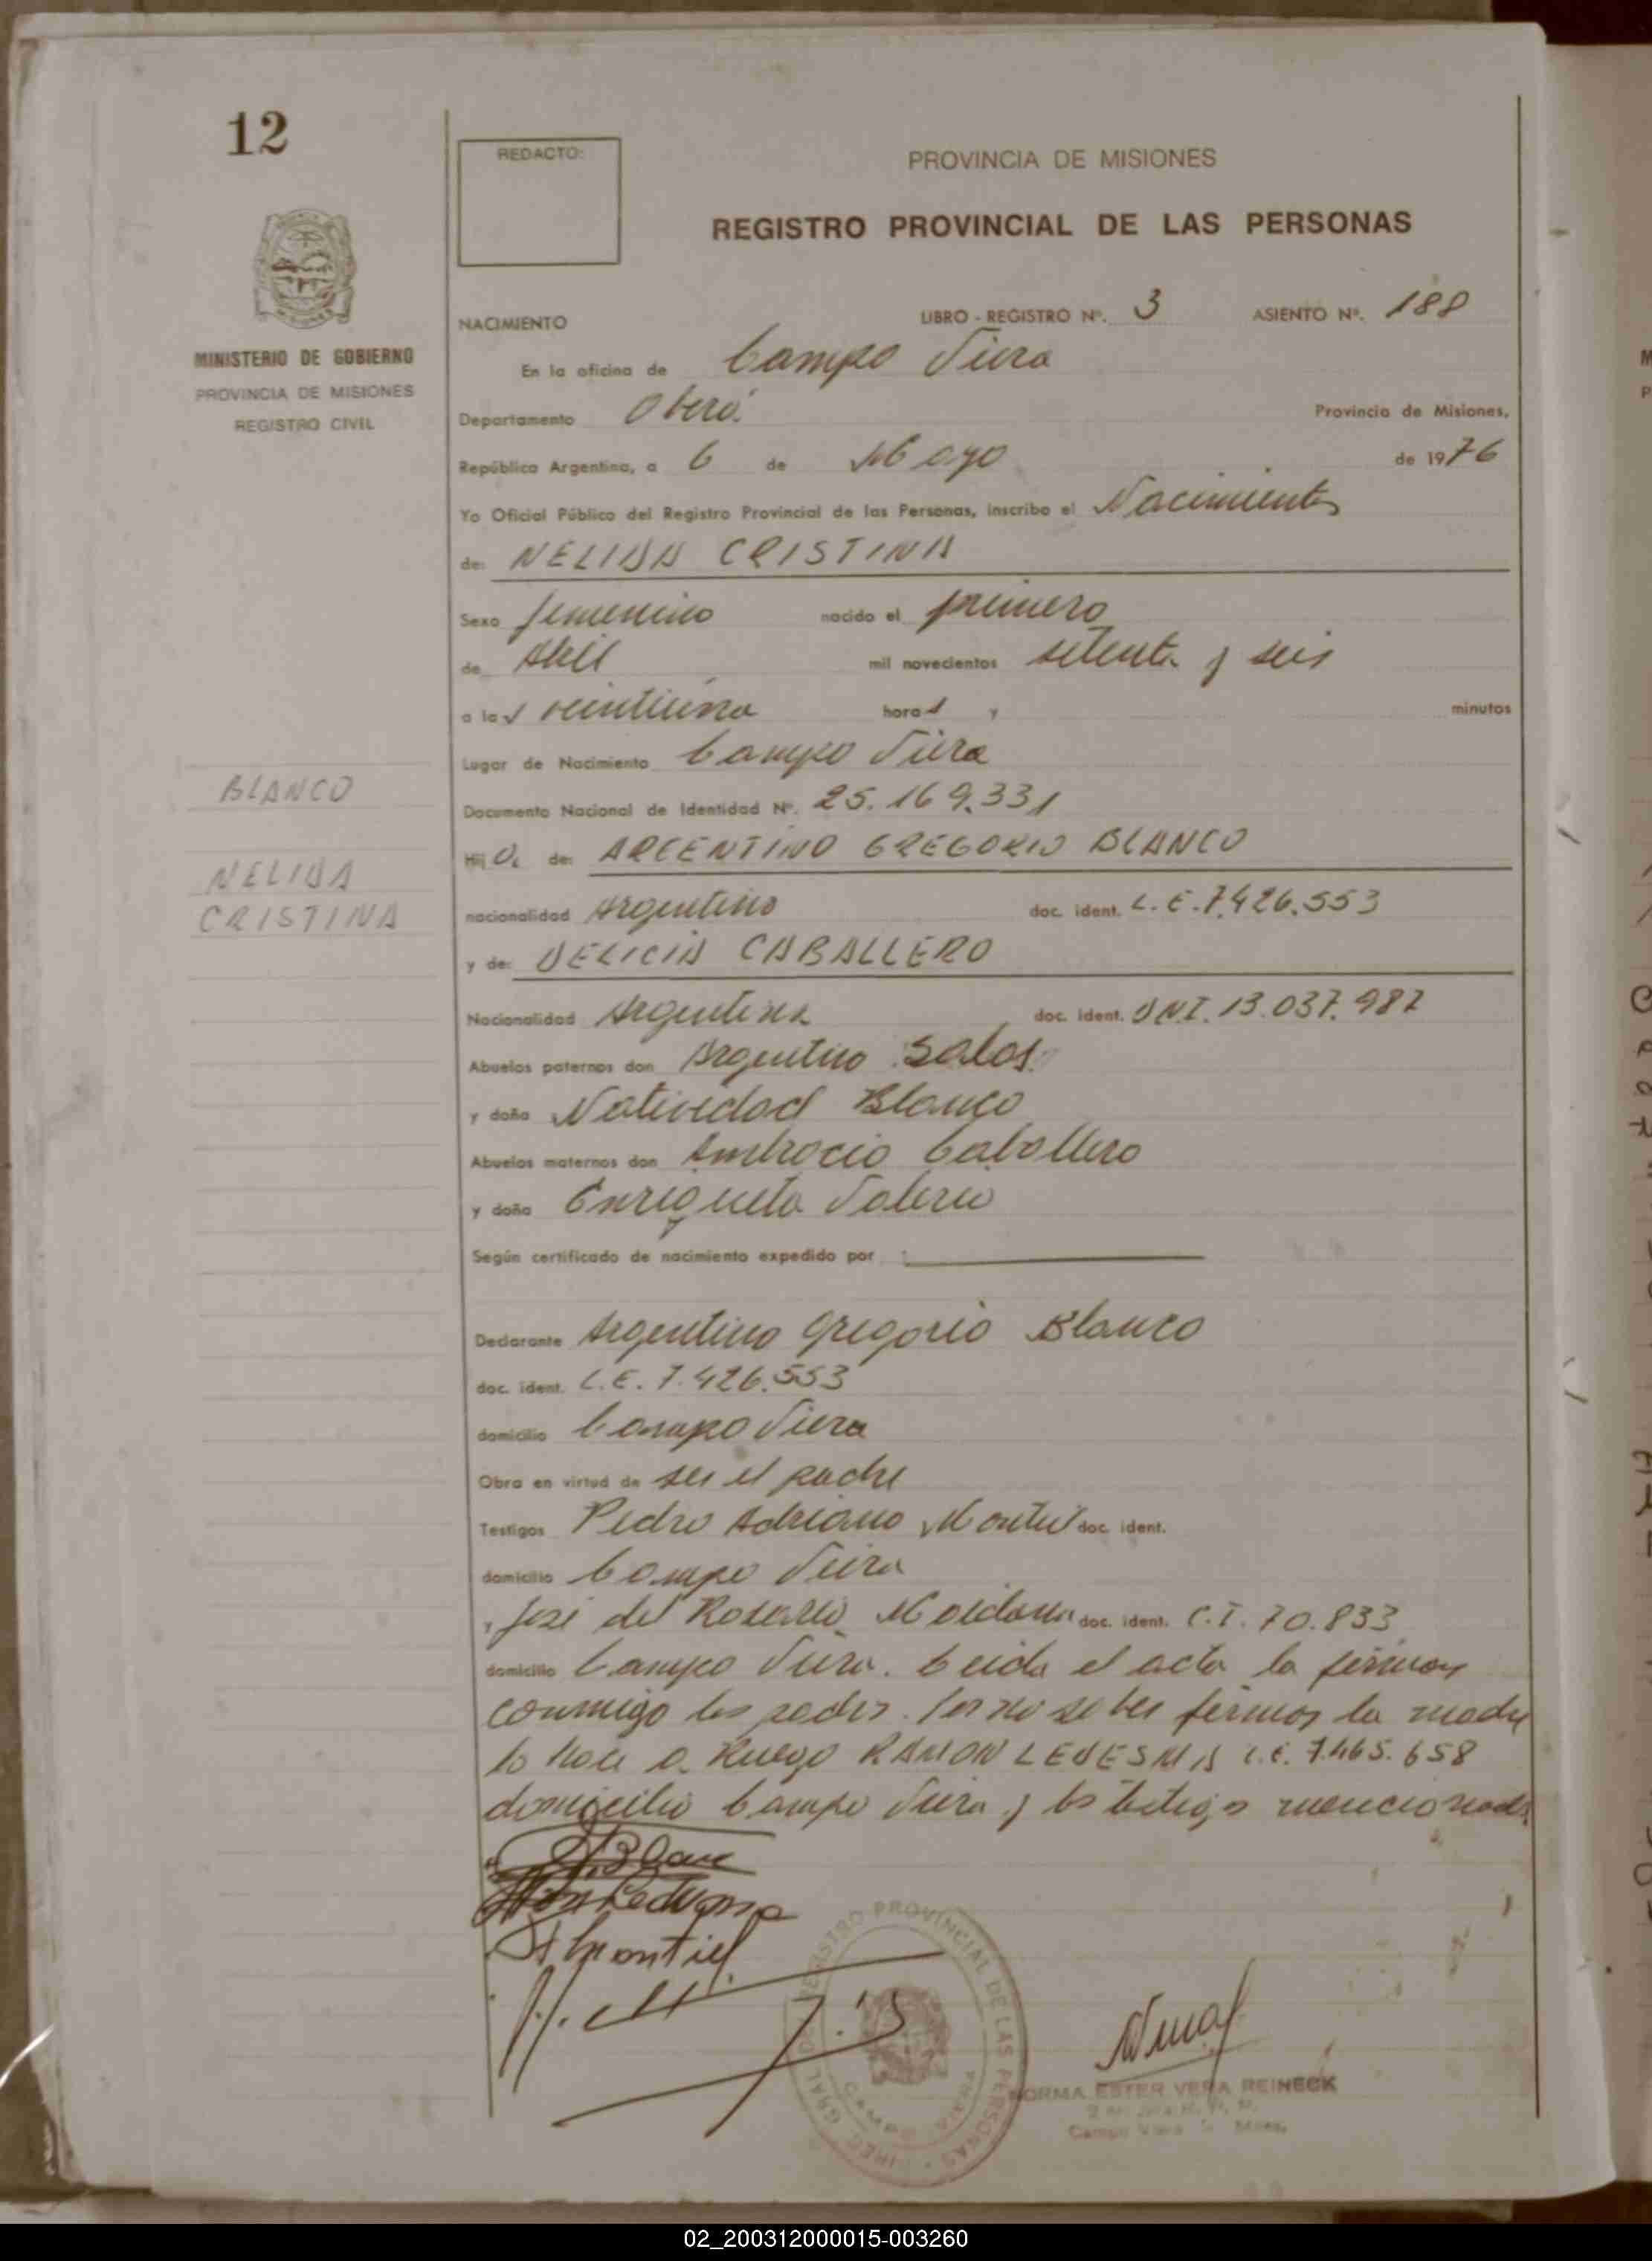 12
REDACTO:
PROVINCIA DE MISIONES
REGISTRO PROVINCIAL DE LAS PERSONAS
MINISTERIO DE GOBIERNO
PROVINCIA DE MISIONES
REGISTRO CIVIL
NACIMIENTO LIBRO - REGISTRO Nº. 3 ASIENTO Nº. 188
En la oficina de Campo Viera
Departamento Oberá. Provincia de Misiones,
República Argentina, a 6 de Mayo de 1976
Yo Oficial Público del Registro Provincial de las Personas, inscribo el Nacimiento
de: NELIDA CRISTINA
Sexo femenino nacido el primero
de Abril mil novecientos setenta y seis
a las veintiuna horas y minutos
Lugar de Nacimiento Campo Viera
BLANCO
Documento Nacional de Identidad Nº. 25.169.331
Hija de: ARGENTINO GREGORIO BLANCO
NELIDA
CRISTINA
nacionalidad Argentino doc. ident. L.E. 7.426.553
y de: DELICIA CABALLERO
Nacionalidad Argentina doc. ident. DNI. 13.037.987
Abuelos paternos don Argentino Salas
y doña Natividad Blanco
Abuelos maternos don Ambrocio Caballero
y doña Enriqueta
Según certificado de nacimiento expedido por
Declarante Argentino Gregorio Blanco
doc. ident. L.E. 7.426.553
domicilio Campo Viera
Obra en virtud de ser el padre
Testigos Pedro Adriano Montiel doc. ident.
domicilio Campo Viera
y José del Rosario Maidana doc. ident. C.I. 70.833
domicilio Campo Viera. Leida el acta la firman
conmigo los padres. Por no saber firmar la madre
lo hace a Ruego RAMON LEDESMA L.E. 7.465.658
domicilio Campo Viera y los testigos mencionados
A Blanco
Ledesma
A Montiel
REGISTRO PROVINCIAL DE LAS PERSONAS
CAMPO VIERA
NORMA ESTER VERA REINECK
Campo Viera
02_200312000015-003260